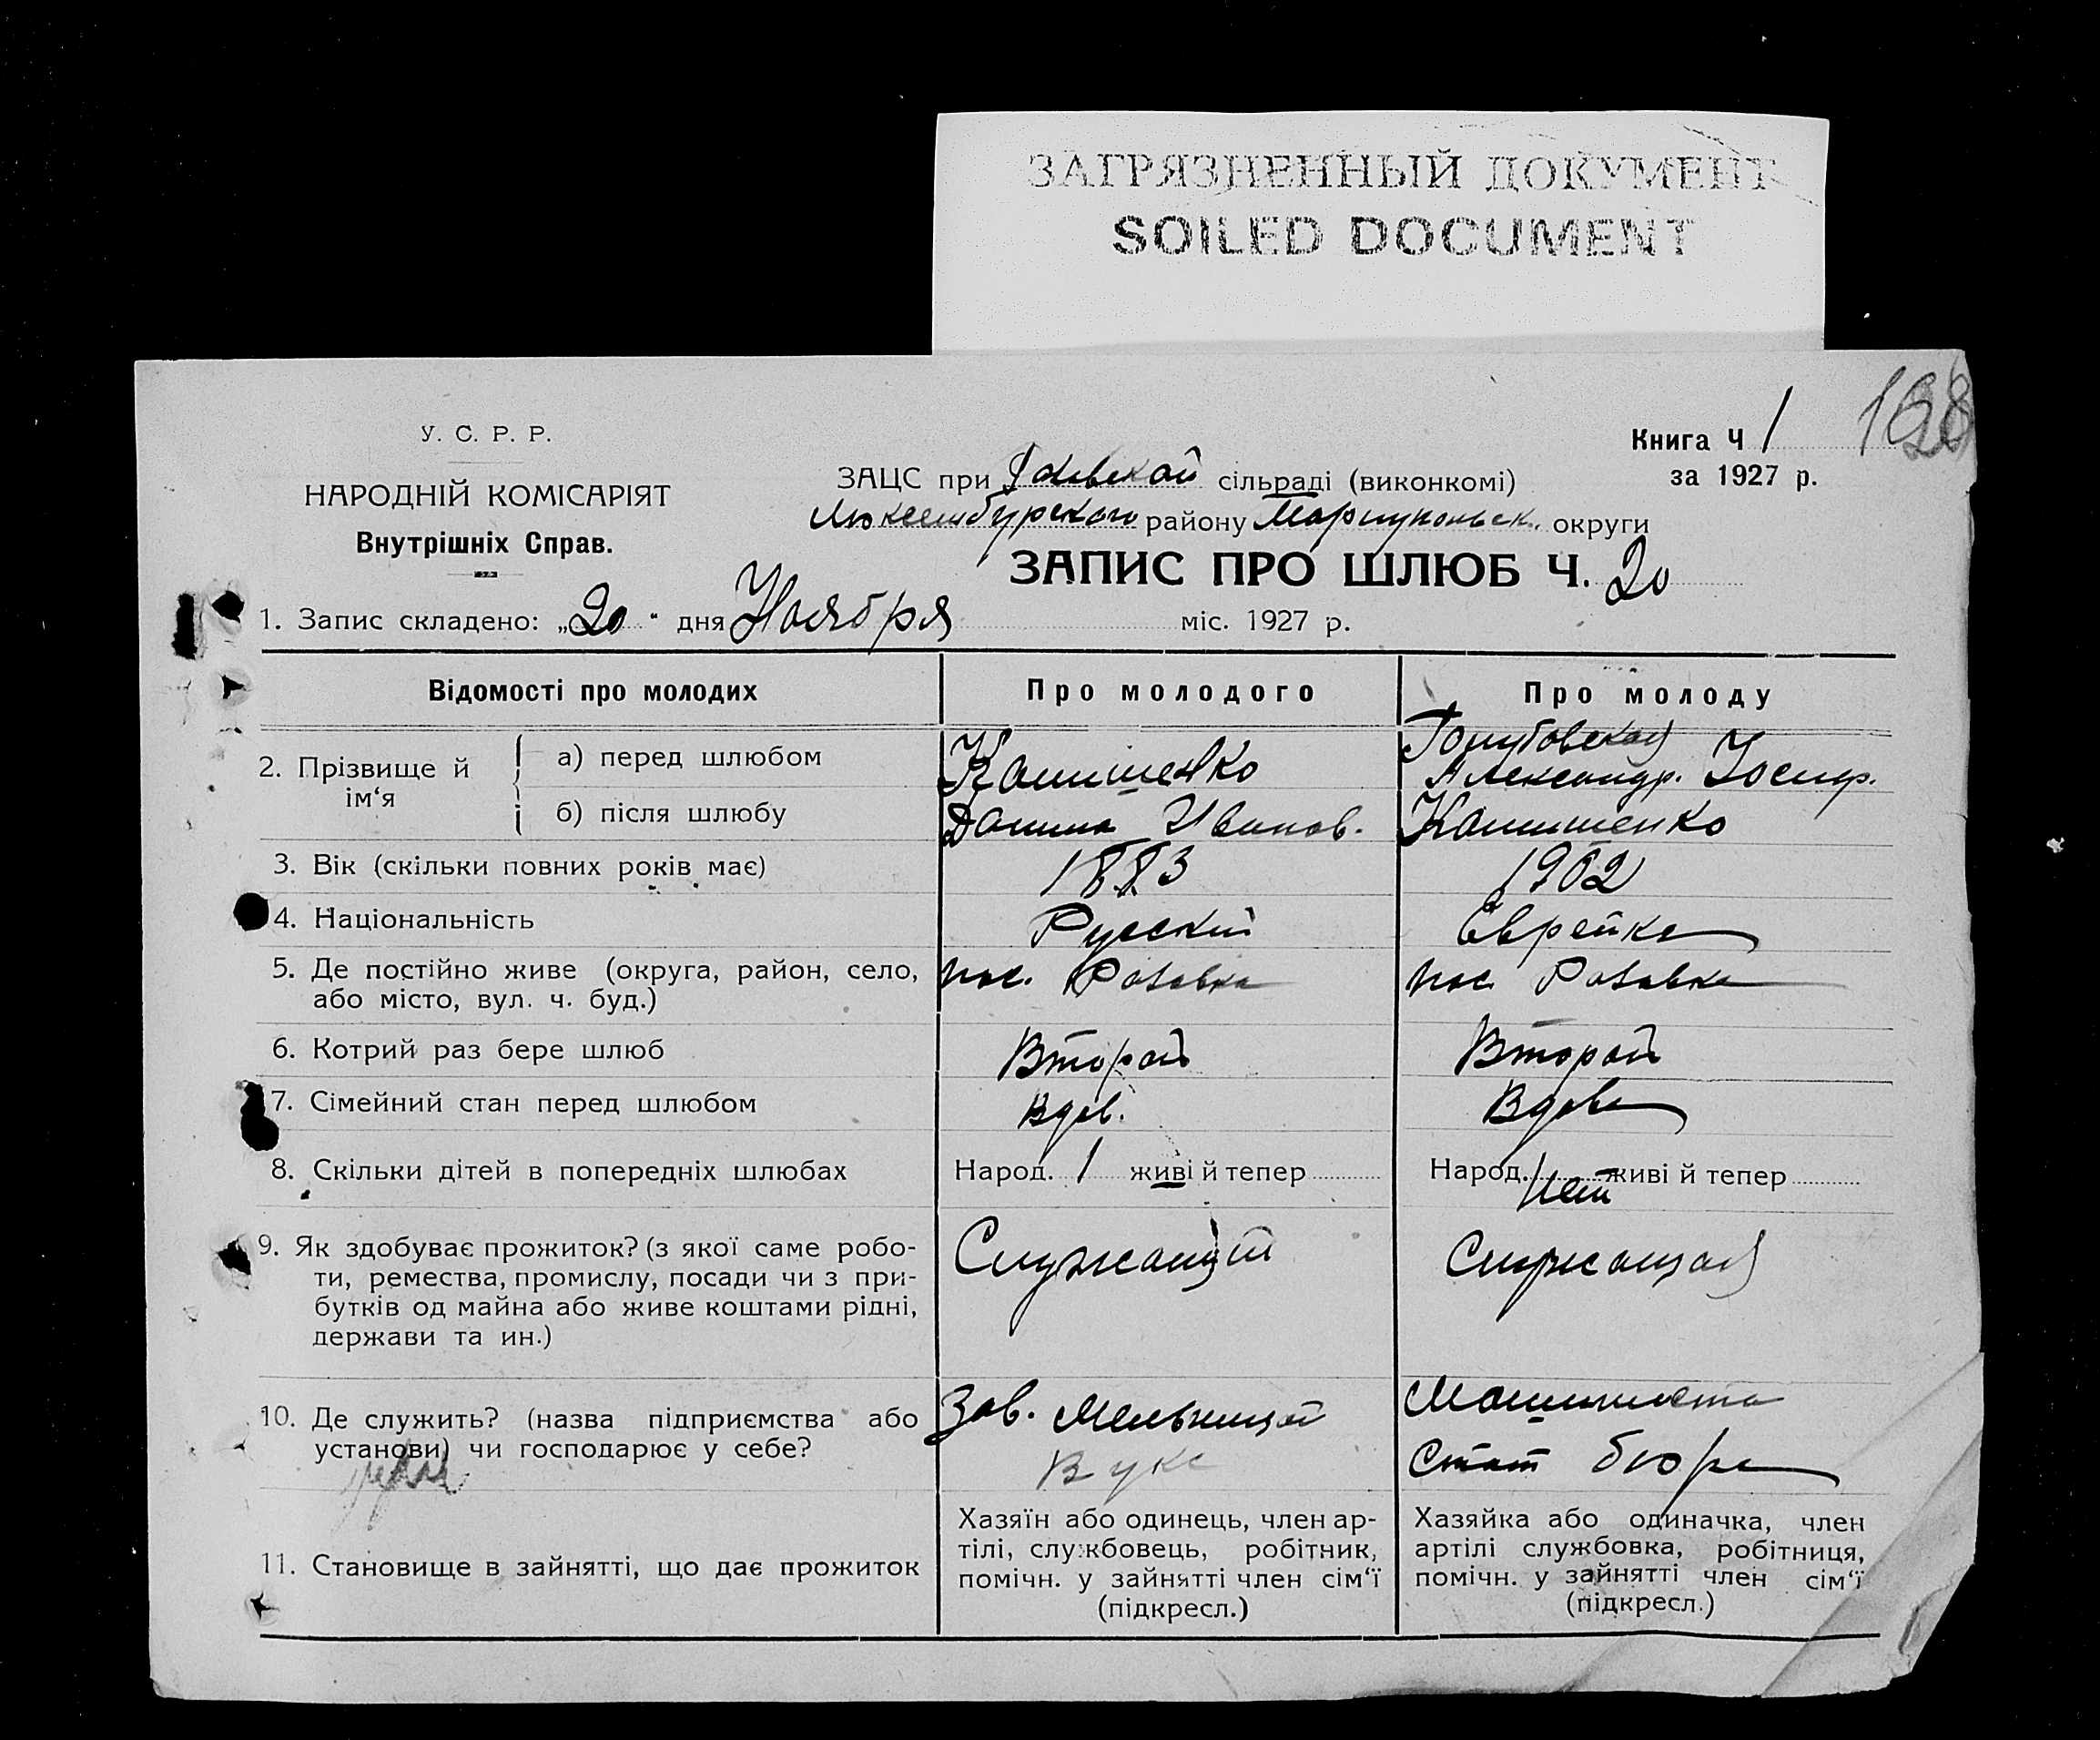 ЗАГРЯЗНЕННЫЙ ДОКУМЕНТ
SOILED DOCUMENT
У. С. Р. Р.
НАРОДНІЙ КОМІСАРІЯТ
Внутрішніх Справ.
Книга Ч 1
за 1927 р.
ЗАЦС при сільраді (виконкомі)
Люксембургского району Мариупольск. округи
ЗАПИС ПРО ШЛЮБ Ч. 20
1. Запис складено: „20“ дня Ноября міс. 1927 р.
Відомості про молодих Про молодого Про молоду
2. Прізвище й ім‘я
а) перед шлюбом Голубовская Александр. Иосиф.
б) після шлюбу Иванов.
3. Вік (скільки повних років має) 1883 1902
4. Національність Русский Еврейка
5. Де постійно живе (округа, район, село, пос. Розовка пос. Розовка
або місто, вул. ч. буд.)
6. Котрий раз бере шлюб Второй Второй
7. Сімейний стан перед шлюбом Вдов. Вдова
8. Скільки дітей в попередніх шлюбах Народ. 1 живі й тепер Народ. Нет живі й тепер
9. Як здобуває прожиток? (з якої саме робо- Служащий Служащая
ти, ремества, промислу, посади чи з при-
бутків од майна або живе коштами рідні,
держави та ин.)
10. Де служить? (назва підприємства або Зав. Мельницей Машинистка
установи) чи господарює у себе? Стат бюро
11. Становище в зайнятті, що дає прожиток
Хазяїн або одинець, член ар-
тілі, службовець, робітник,
помічн. у зайнятті член сім‘ї
(підкресл.)
Хазяйка або одиначка, член
артілі службовка, робітниця,
помічн. у зайнятті член сім‘ї
(підкресл.)